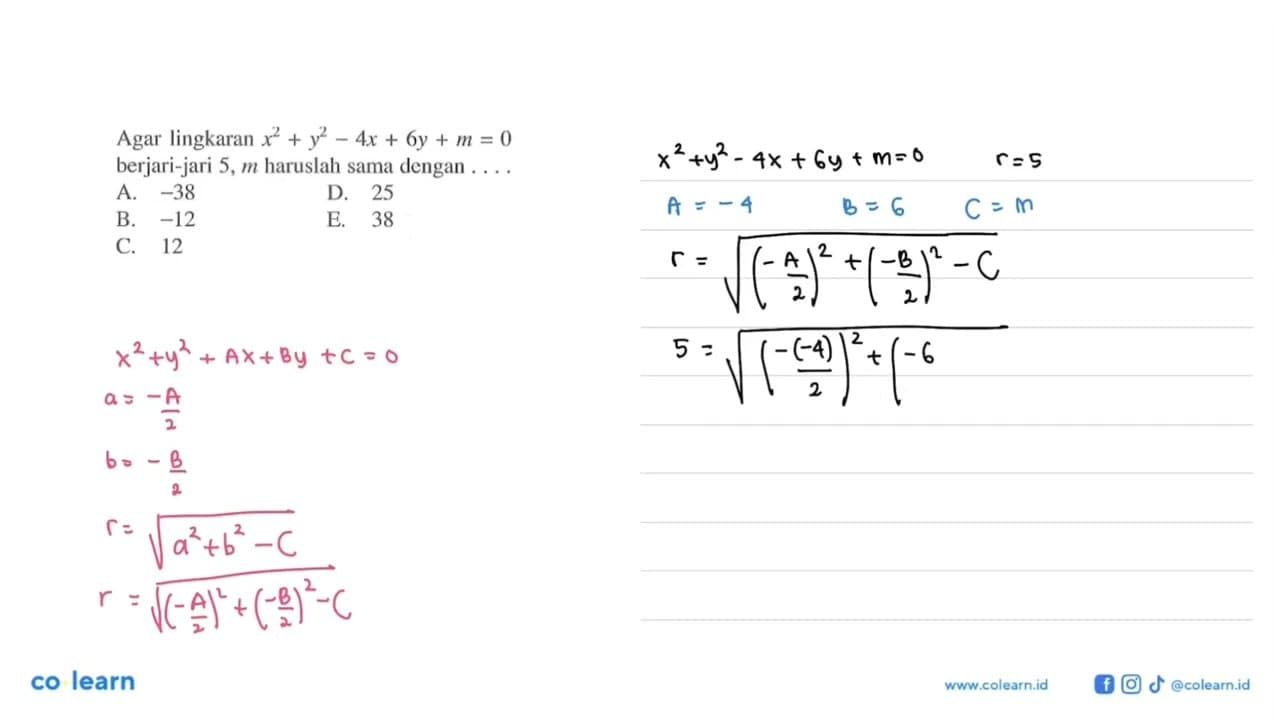 Agar lingkaran x² + y² − 4x + 6y + m = 0
berjari-jari 5, m haruslah sama dengan . . . .
A. −38 D. 25
B. −12 E. 38
C. 12
x² + y² + Ax + By + C = 0
a = -A/2
b = -B/2
r = √(a² + b² - C)
r = √((-A/2)² + (-B/2)² - C)
x² + y² - 4x + 6y + m = 0 r = 5
A = -4 B = 6 C = m
r = √((-A/2)² + (-B/2)² - C)
5 = √((-(-4)/2)² + (-6
co learn
www.colearn.id @colearn.id